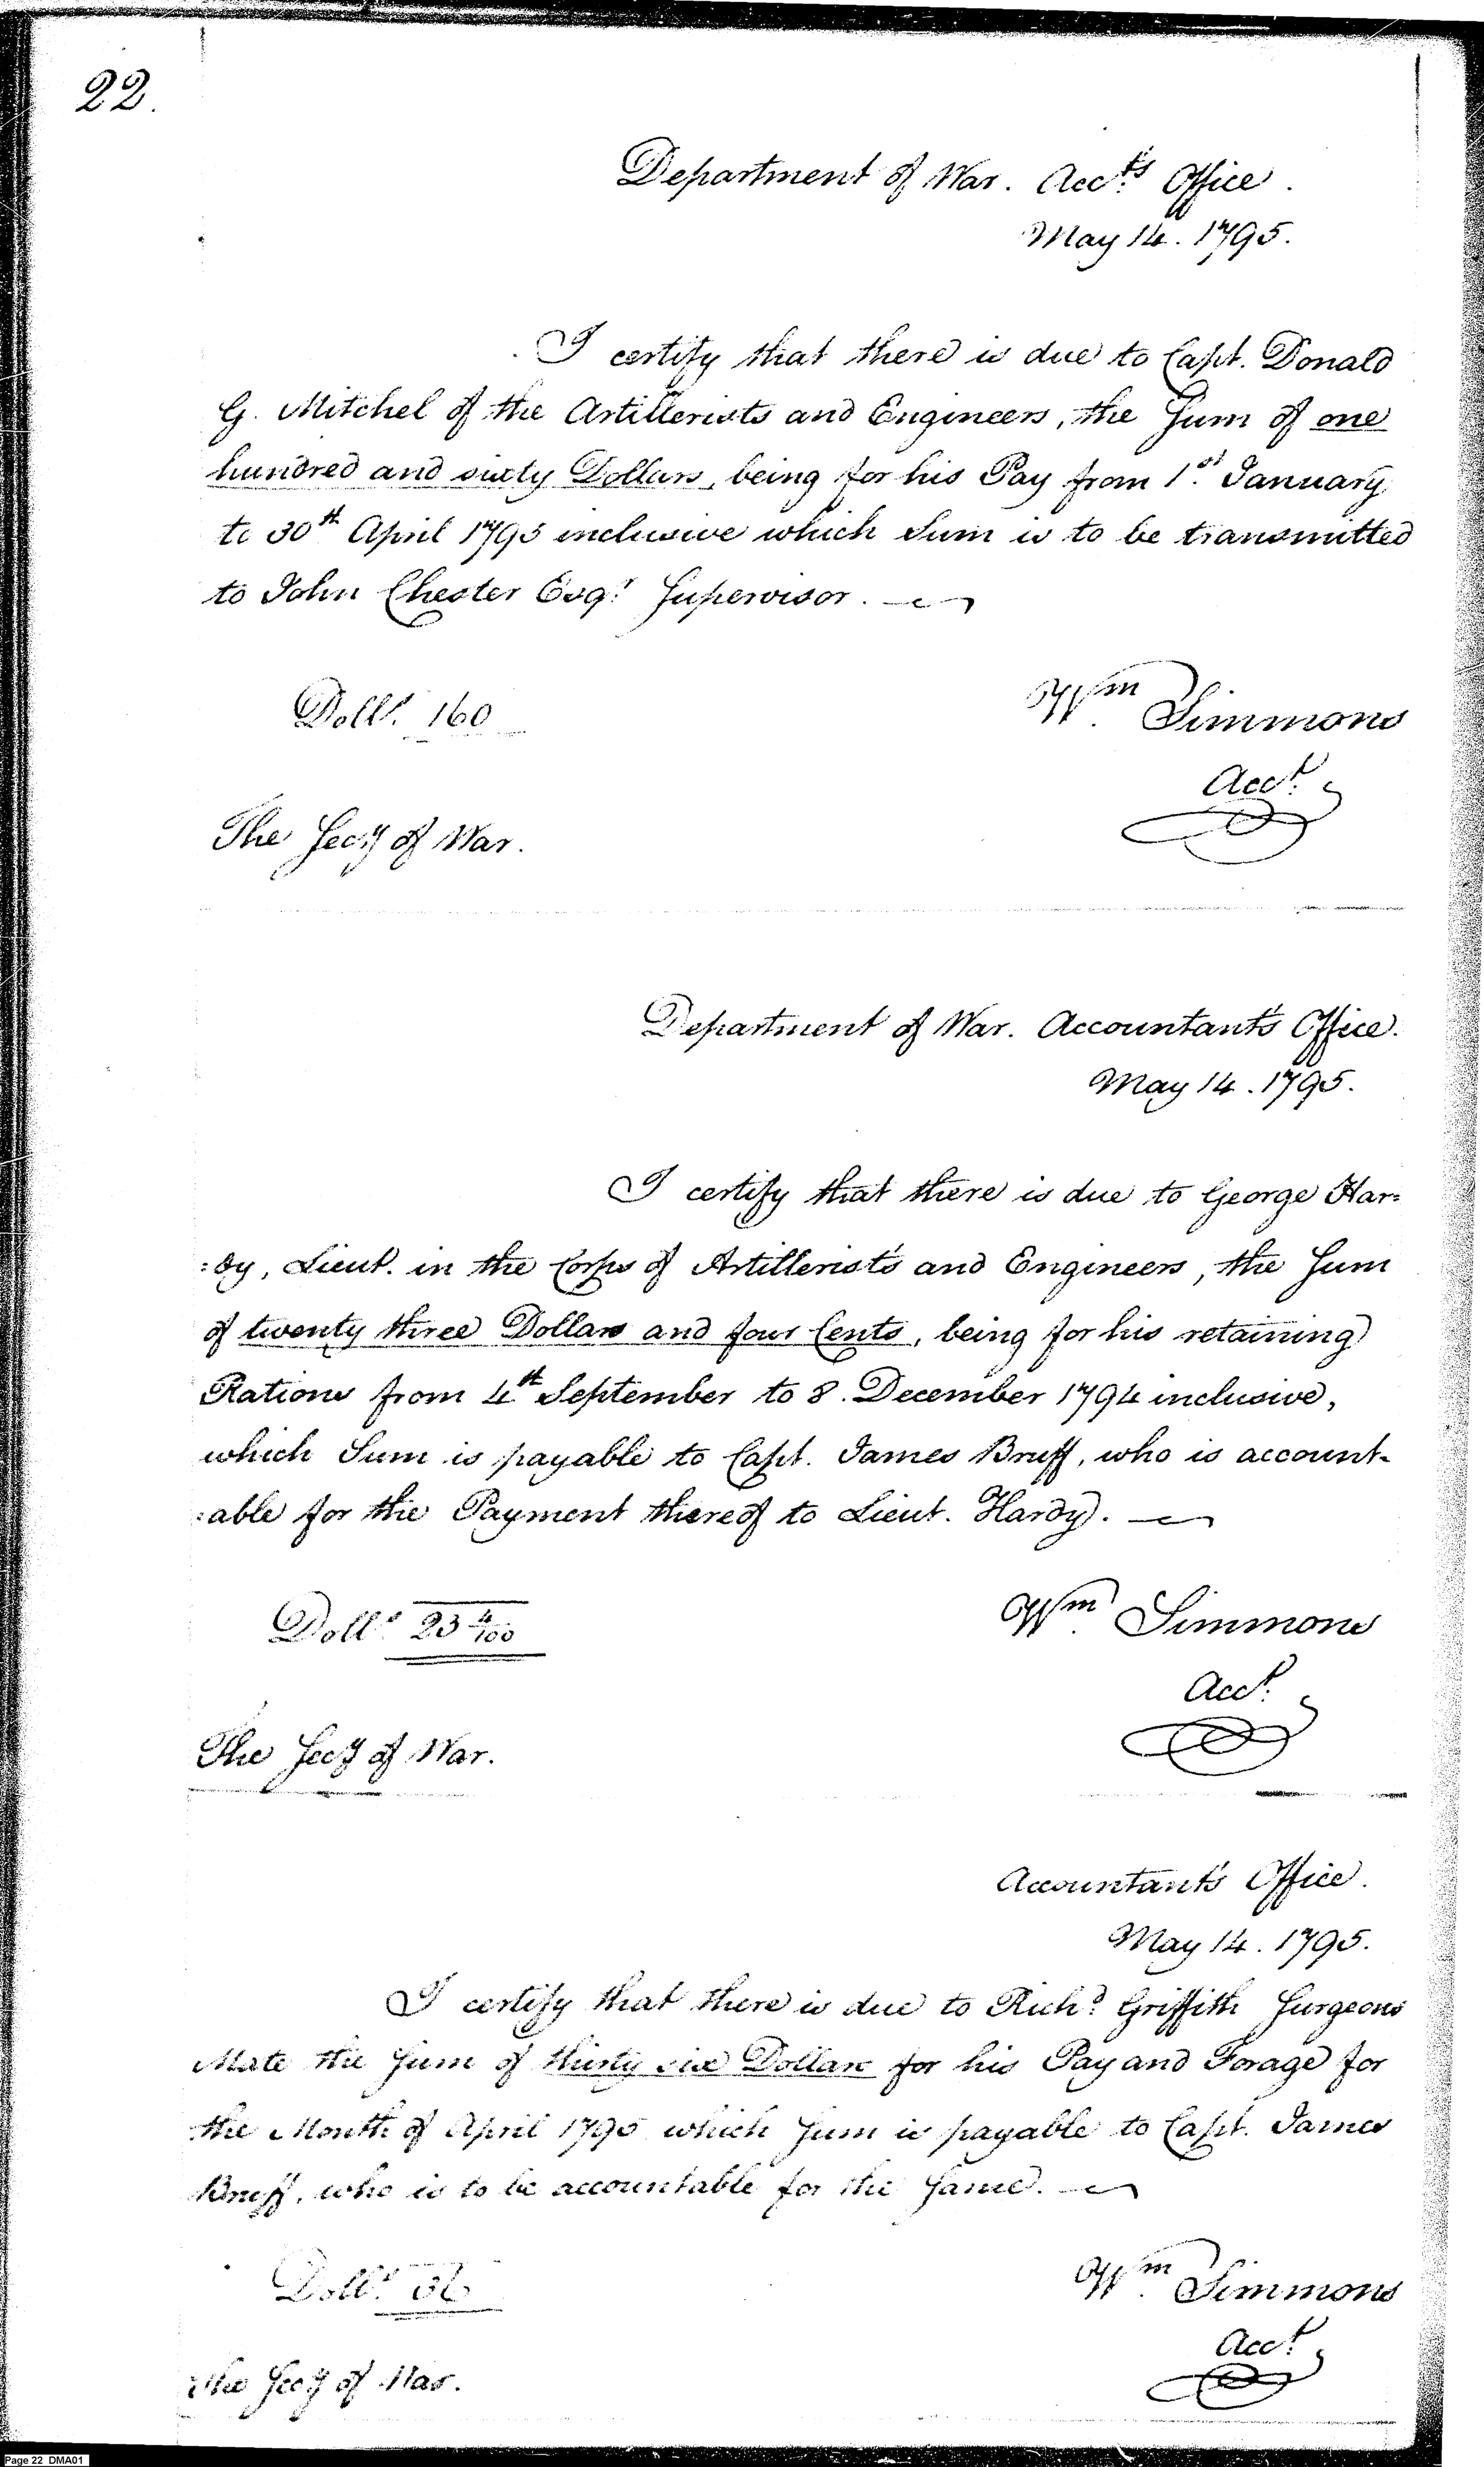 22.
Department of War. Acc.ts Office.
May 14. 1795.
I certify that there is due to Capt. Donald
G. Mitchel of the Artillerists and Engineers, the Sum of one
hundred and sixty Dollars, being for his Pay from 1.st January
to 30th April 1795 inclusive which Sum is to be transmitted
to John Chester Esq.r Supervisor.
Doll.s 160
Wm Simmons
Acc.t
The Sec.y of War.
Department of War. Accountant's Office.
May 14. 1795.
I certify that there is due to George Har=
:dy, Lieut. in the Corps of Artillerists and Engineers, the Sum
of twenty three Dollars and four Cents, being for his retaining
Rations from 4th September to 8. December 1794 inclusive,
which Sum is payable to Capt. James Bruff, who is account-
:able for the Payment thereof to Lieut. Hardy.
Doll.s 23 4/100
Wm Simmons
Acc.t
The Sec.y of War.
Accountant's Office.
May 14. 1795.
I certify that there is due to Rich.d Griffith Surgeons
Mate the Sum of thirty six Dollars for his Pay and Forage for
the Month of April 1795 which Sum is payable to Capt. James
Bruff, who is to be accountable for the Same.
Doll.s 36
Wm Simmons
Acc.t
The Sec.y of War.
Page 22 DMA01